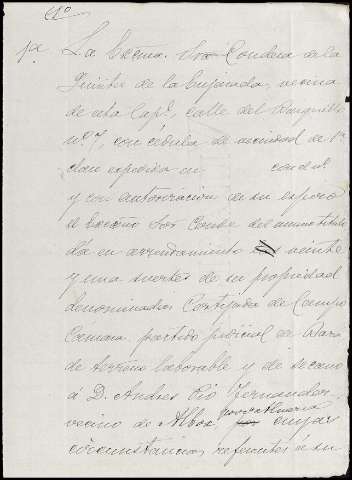 1º
1ª La Excma. Sra Condesa de la
Puente de la Enjarada, vecina
de esta Capl, calle del Barquillo
nº 7, con cédula de vecindad de 1ª
clase expedida en con el nº
y con autorizacion de su esposo
el Excmo Sor Conde del mismo titulo
da en arrendamiento veinte
y una suertes de su propiedad
denominadas Cortijada de Campo
Cámara partido judicial de Baza
de terreno laborable y de secano
á D. Andres Pio Fernandez
vecino de Albox, prova Almeria cuyas
circunstancias referentes á su